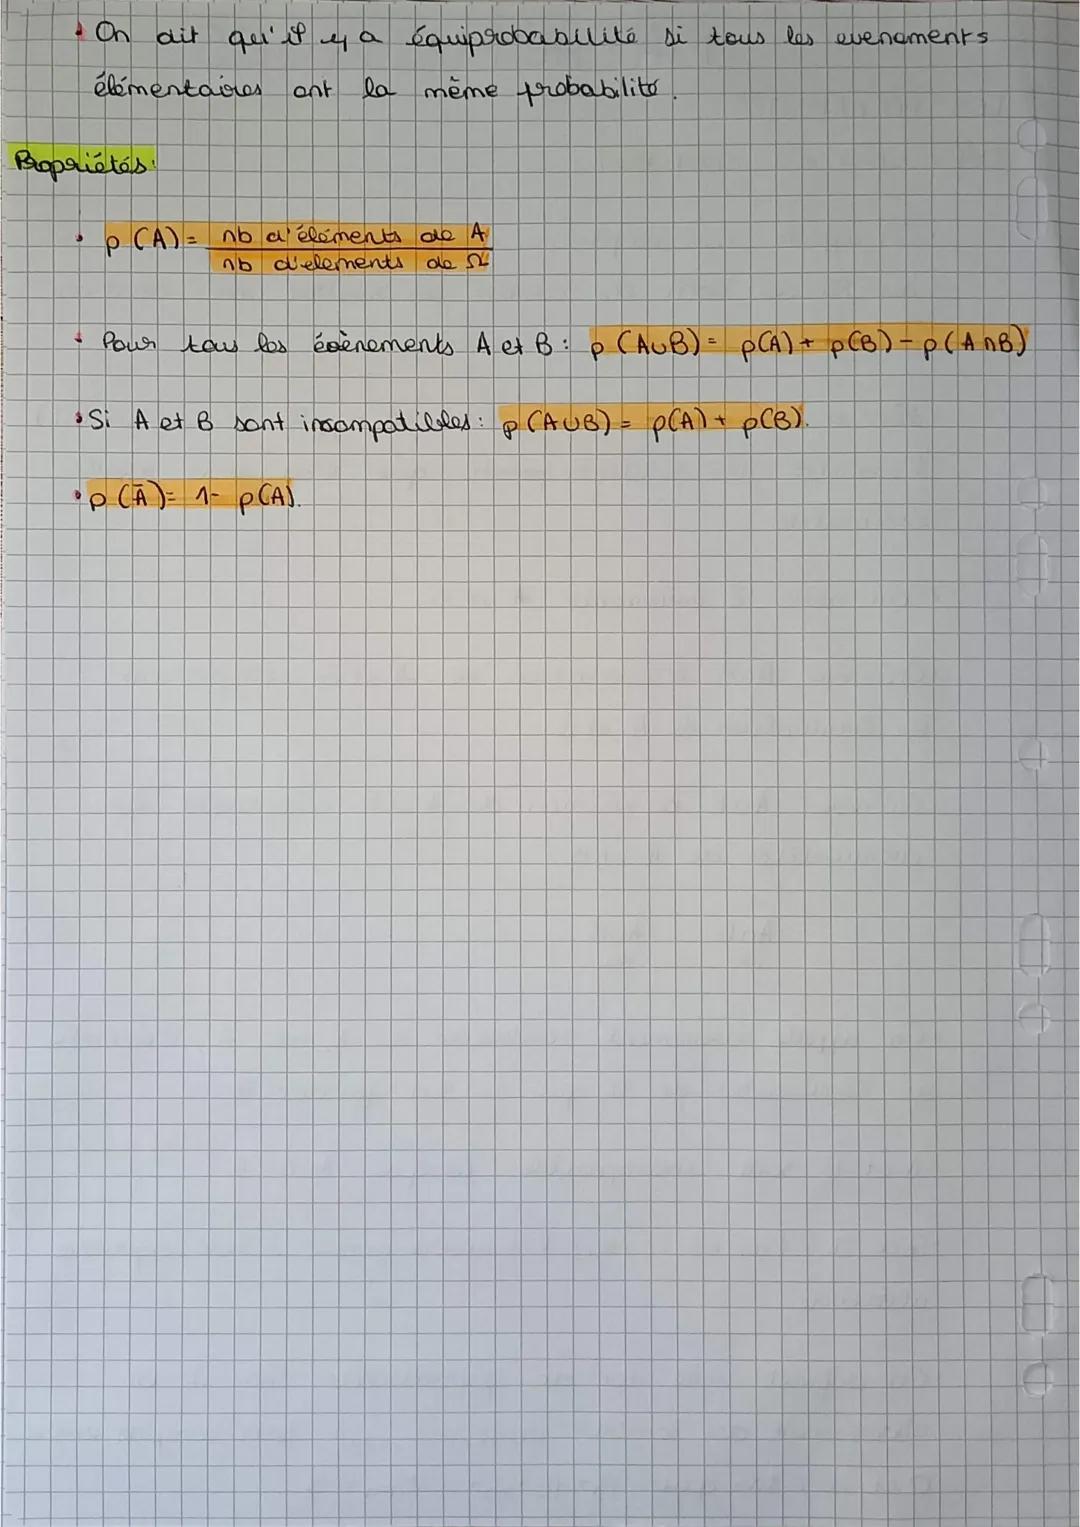 On dit qu'il y a équiprobabilité si tous les evenements
élémentaires ont la même probabilité.
Propriétés:
p(A) = nb d'éléments de A
nb d'elements de Ω
Pour tous les évènements A et B: p(A∪B) = p(A) + p(B) - p(A∩B)
Si A et B sont incompatibles: p(A∪B) = p(A) + p(B).
p(Ā) = 1- p(A).